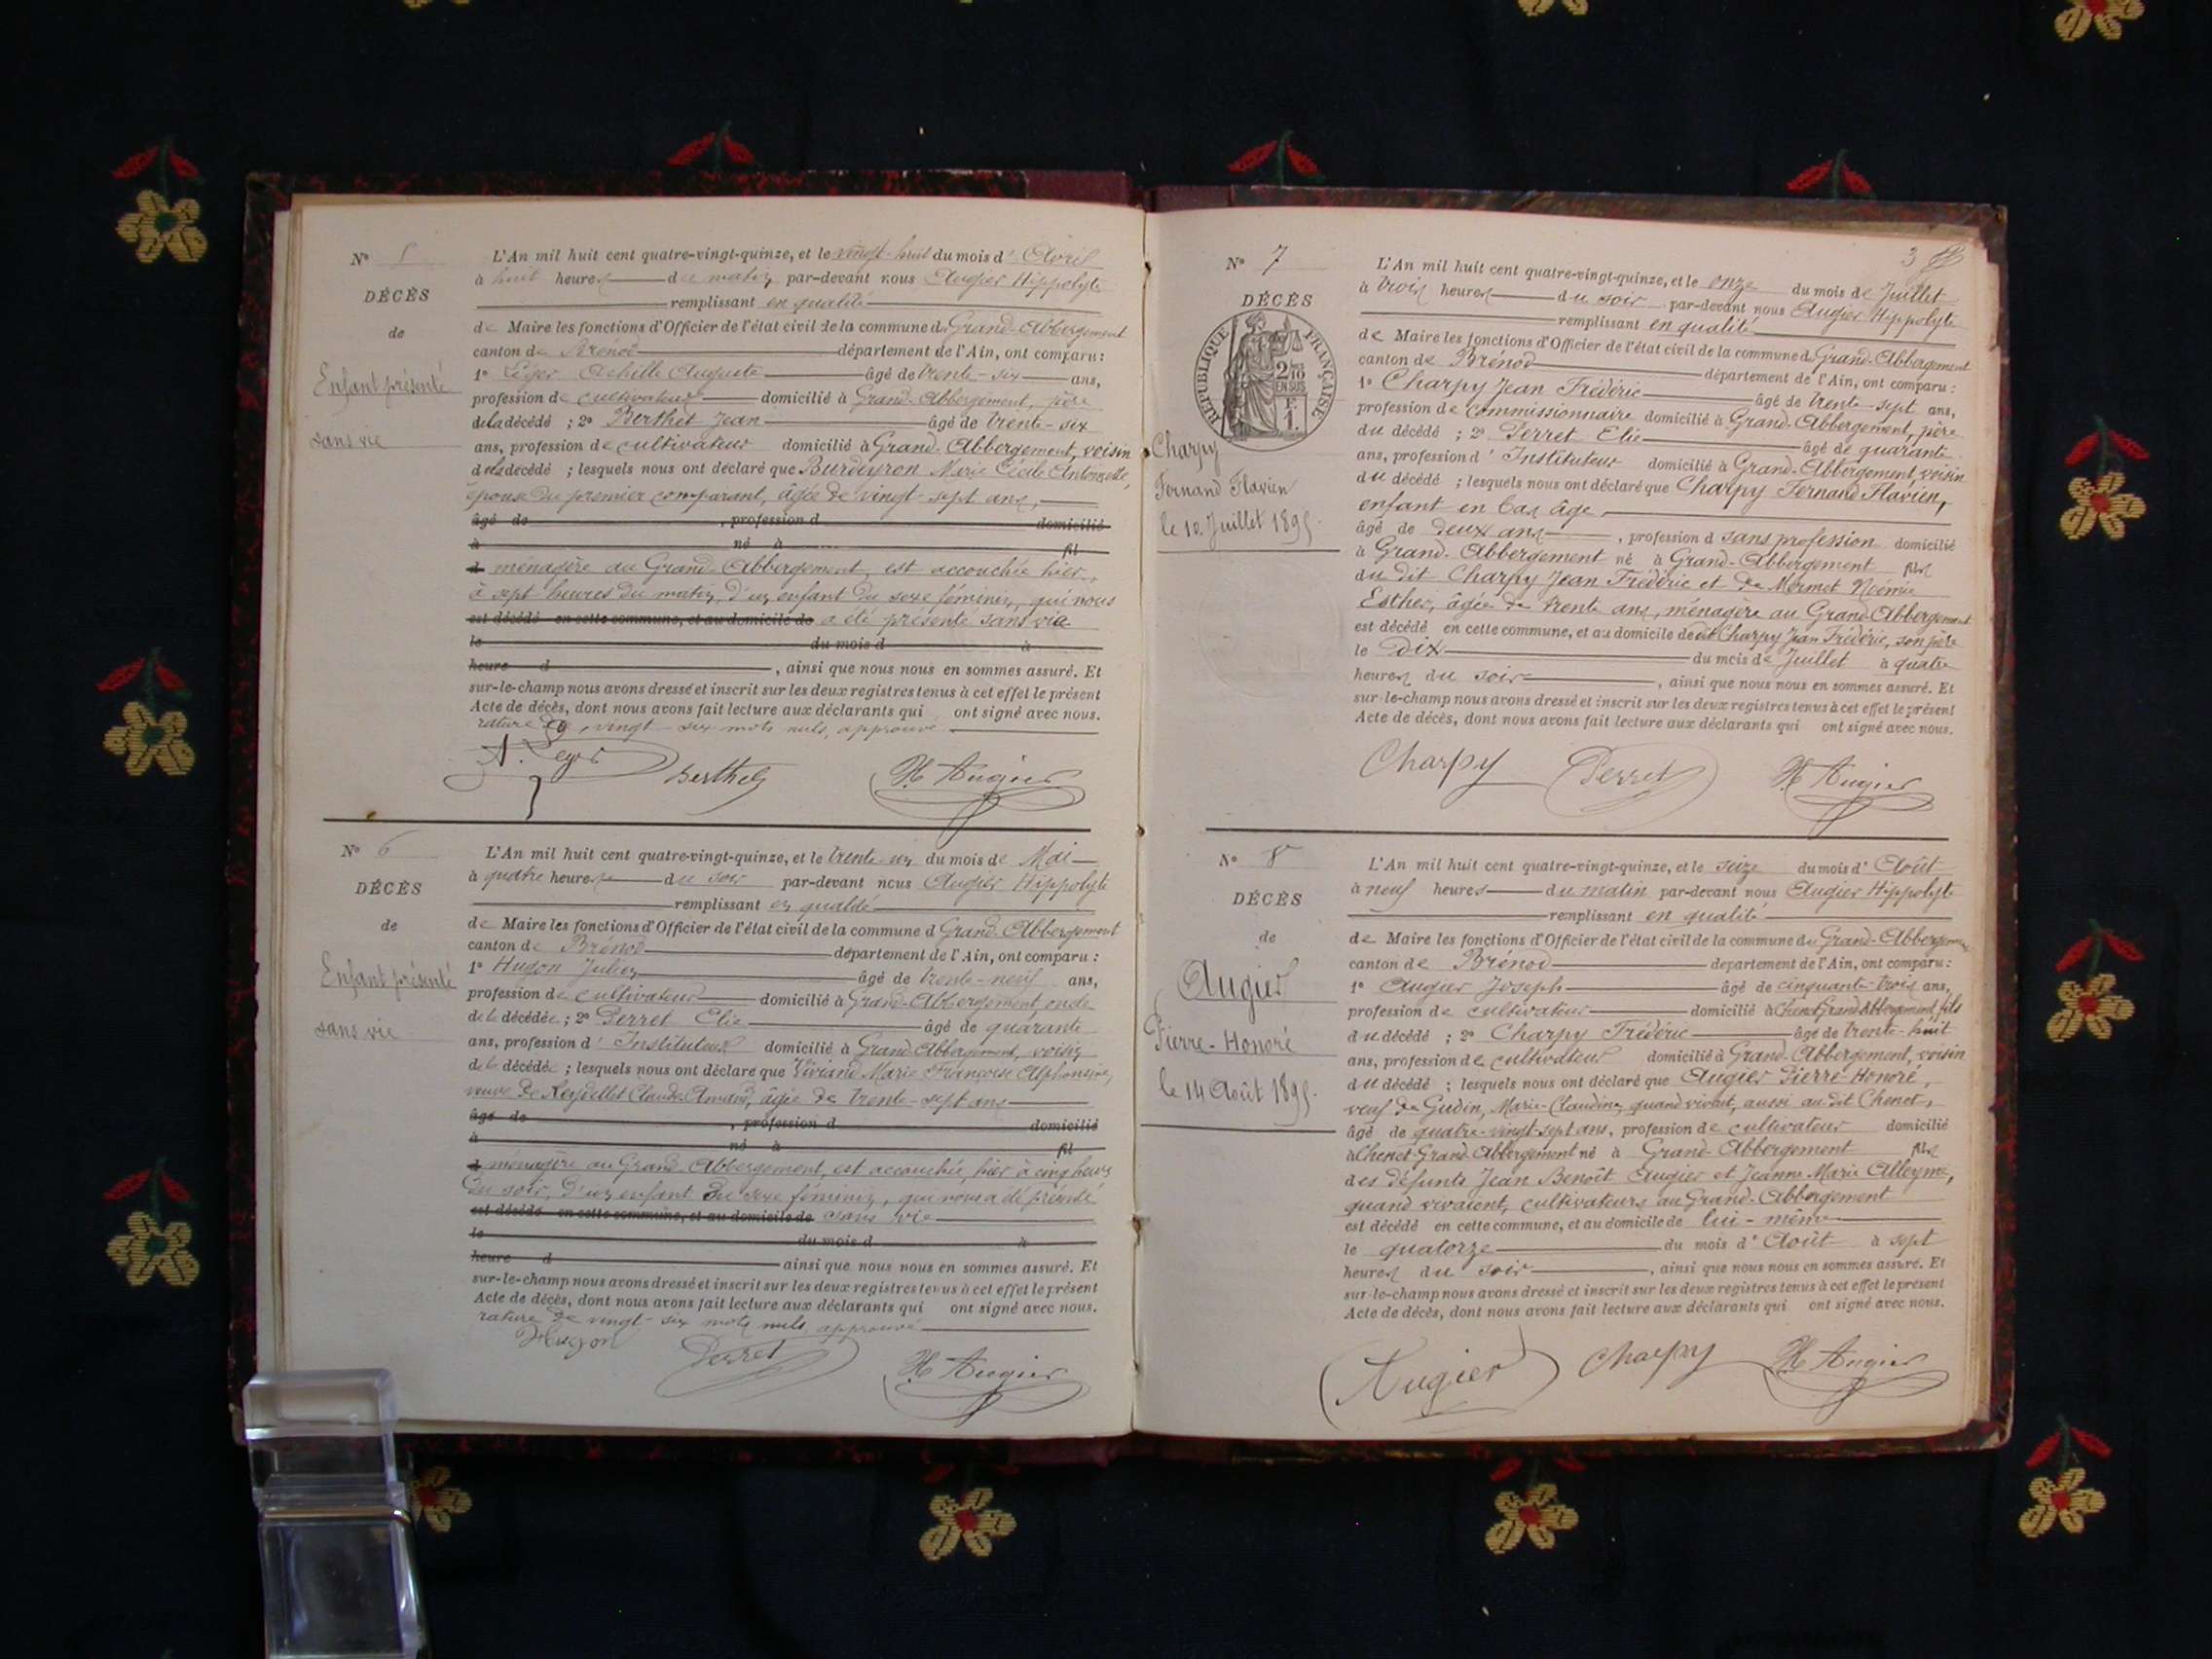 N° 5
DÉCÈS
de
Enfant présenté
sans vie
L'An mil huit cent quatre-vingt-quinze, et le vingt-huit du mois d' Avril
à huit heures du matin par-devant nous Augier Hippolyte
remplissant en qualité
de Maire les fonctions d'Officier de l'état civil de la commune du Grand-Abbergement
canton de Brénod département de l'Ain, ont comparu :
1° Léger Achille Auguste âgé de trente-six ans,
profession de cultivateur domicilié à Grand-Abbergement, père
de la décédé ; 2° Berthet Jean âgé de trente-six
ans, profession de cultivateur domicilié à Grand-Abbergement, voisin
de la décédé ; lesquels nous ont déclaré que Burdeyron Marie Cécile Antoinette,
épouse du premier comparant, âgée de vingt-sept ans,
âgé de , profession d domicilié
à né à fil
d ménagère au Grand-Abbergement, est accouchée hier,
à sept heures du matin, d'un enfant du sexe féminin, qui nous
est décédé en cette commune, et au domicile de a été présenté sans vie
le du mois d à
heure d , ainsi que nous nous en sommes assuré. Et
sur-le-champ nous avons dressé et inscrit sur les deux registres tenus à cet effet le présent
Acte de décès, dont nous avons fait lecture aux déclarants qui ont signé avec nous.
rature de vingt-six mots nuls, approuvé
A. Leger Berthet H. Augier
N° 6
DÉCÈS
de
Enfant présenté
sans vie
L'An mil huit cent quatre-vingt-quinze, et le trente-un du mois de Mai
à quatre heures du soir par-devant nous Augier Hippolyte
remplissant en qualité
de Maire les fonctions d'Officier de l'état civil de la commune d Grand-Abbergement
canton de Brénod département de l'Ain, ont comparu :
1° Hugon Julien âgé de trente-neuf ans,
profession de cultivateur domicilié à Grand-Abbergement, oncle
de la décédée ; 2° Perret Elie âgé de quarante
ans, profession d' Instituteur domicilié à Grand-Abbergement, voisin
de la décédée ; lesquels nous ont déclaré que Viviand Marie Françoise Alphonsine,
veuve de Reydellet Claude-Amand, âgée de trente-sept ans
âgé de , profession d domicilié
à né à fil
d ménagère au Grand-Abbergement, est accouchée, hier à cinq heures
du soir, d'un enfant du sexe féminin, qui nous a été présenté
est décédé en cette commune, et au domicile de sans vie
le du mois d à
heure d ainsi que nous nous en sommes assuré. Et
sur-le-champ nous avons dressé et inscrit sur les deux registres tenus à cet effet le présent
Acte de décès, dont nous avons fait lecture aux déclarants qui ont signé avec nous.
rature de vingt-six mots nuls approuvé
Hugon Perret H. Augier
3
N° 7
DÉCÈS
RÉPUBLIQUE FRANÇAISE
2/10 EN SUS
F. 1.
Charpy
Fernand Flavien
le 10 Juillet 1895.
L'An mil huit cent quatre-vingt-quinze, et le onze du mois de Juillet
à trois heures du soir par-devant nous Augier Hippolyte
remplissant en qualité
de Maire les fonctions d'Officier de l'état civil de la commune du Grand-Abbergement
canton de Brénod département de l'Ain, ont comparu :
1° Charpy Jean Frédéric âgé de trente-sept ans,
profession de commissionnaire domicilié à Grand-Abbergement, père
du décédé ; 2° Perret Elie âgé de quarante
ans, profession d' Instituteur domicilié à Grand-Abbergement, voisin
du décédé ; lesquels nous ont déclaré que Charpy Fernand Flavien,
enfant en bas âge,
âgé de deux ans , profession d sans profession domicilié
à Grand-Abbergement né à Grand-Abbergement fils
du dit Charpy Jean Frédéric et de Mermet Noémie
Esther, âgée de trente ans, ménagère au Grand-Abbergement
est décédé en cette commune, et au domicile de dit Charpy Jean Frédéric, son père
le dix du mois de Juillet à quatre
heures du soir , ainsi que nous nous en sommes assuré. Et
sur-le-champ nous avons dressé et inscrit sur les deux registres tenus à cet effet le présent
Acte de décès, dont nous avons fait lecture aux déclarants qui ont signé avec nous.
Charpy Perret H. Augier
N° 8
DÉCÈS
de
Augier
Pierre-Honoré
le 14 Août 1895.
L'An mil huit cent quatre-vingt-quinze, et le seize du mois d' Août
à neuf heures du matin par-devant nous Augier Hippolyte
remplissant en qualité
de Maire les fonctions d'Officier de l'état civil de la commune du Grand-Abbergement
canton de Brénod département de l'Ain, ont comparu :
1° Augier Joseph âgé de cinquante-trois ans,
profession de cultivateur domicilié à Chenet Grand Abbergement, fils
du décédé ; 2° Charpy Frédéric âgé de trente-huit
ans, profession de cultivateur domicilié à Grand-Abbergement, voisin
du décédé ; lesquels nous ont déclaré que Augier Pierre-Honoré,
veuf de Gudin, Marie-Claudine, quand vivait, aussi au dit Chenet,
âgé de quatre-vingt-sept ans, profession de cultivateur domicilié
à Chenet-Grand-Abbergement né à Grand-Abbergement fils
des défunts Jean Benoît Augier et Jeanne-Marie Alleyme,
quand vivaient, cultivateurs au Grand-Abbergement
est décédé en cette commune, et au domicile de lui-même
le quatorze du mois d' Août à sept
heures du soir , ainsi que nous nous en sommes assuré. Et
sur-le-champ nous avons dressé et inscrit sur les deux registres tenus à cet effet le présent
Acte de décès, dont nous avons fait lecture aux déclarants qui ont signé avec nous.
Augier Charpy H. Augier